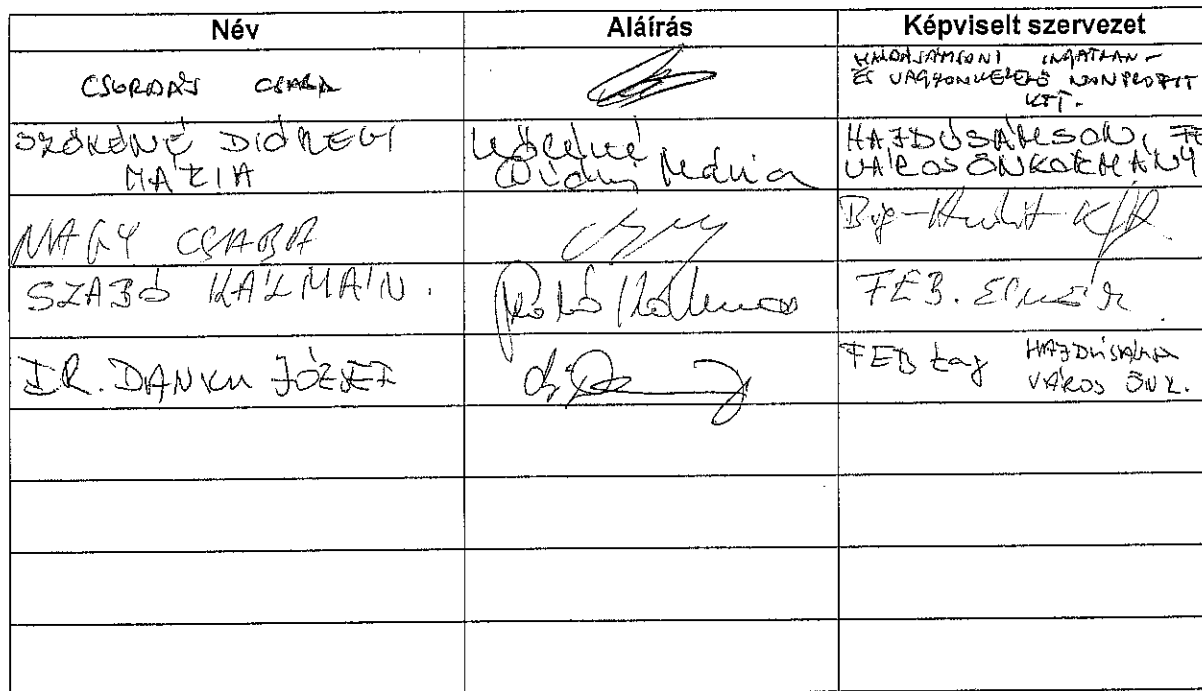 Név Aláírás Képviselt szervezet
CSORDÁS CSABA
HAJDÚSÁMSONI INGATLAN-
ÉS VAGYONKEZELŐ NONPROFIT
KFT.
SZŐKÉNÉ DIÓSZEGI
MÁRIA
Szőkéné
Mária
HAJDÚSÁMSON,
VÁROS ÖNKORMÁNY
NAGY CSABA
Kft
SZABÓ KÁLMÁN.
Szabó Kálmán
FEB. Elnök
DR. DANKU JÓZSEF
FEB tag HAJDÚSÁMSON
VÁROS ÖNK.